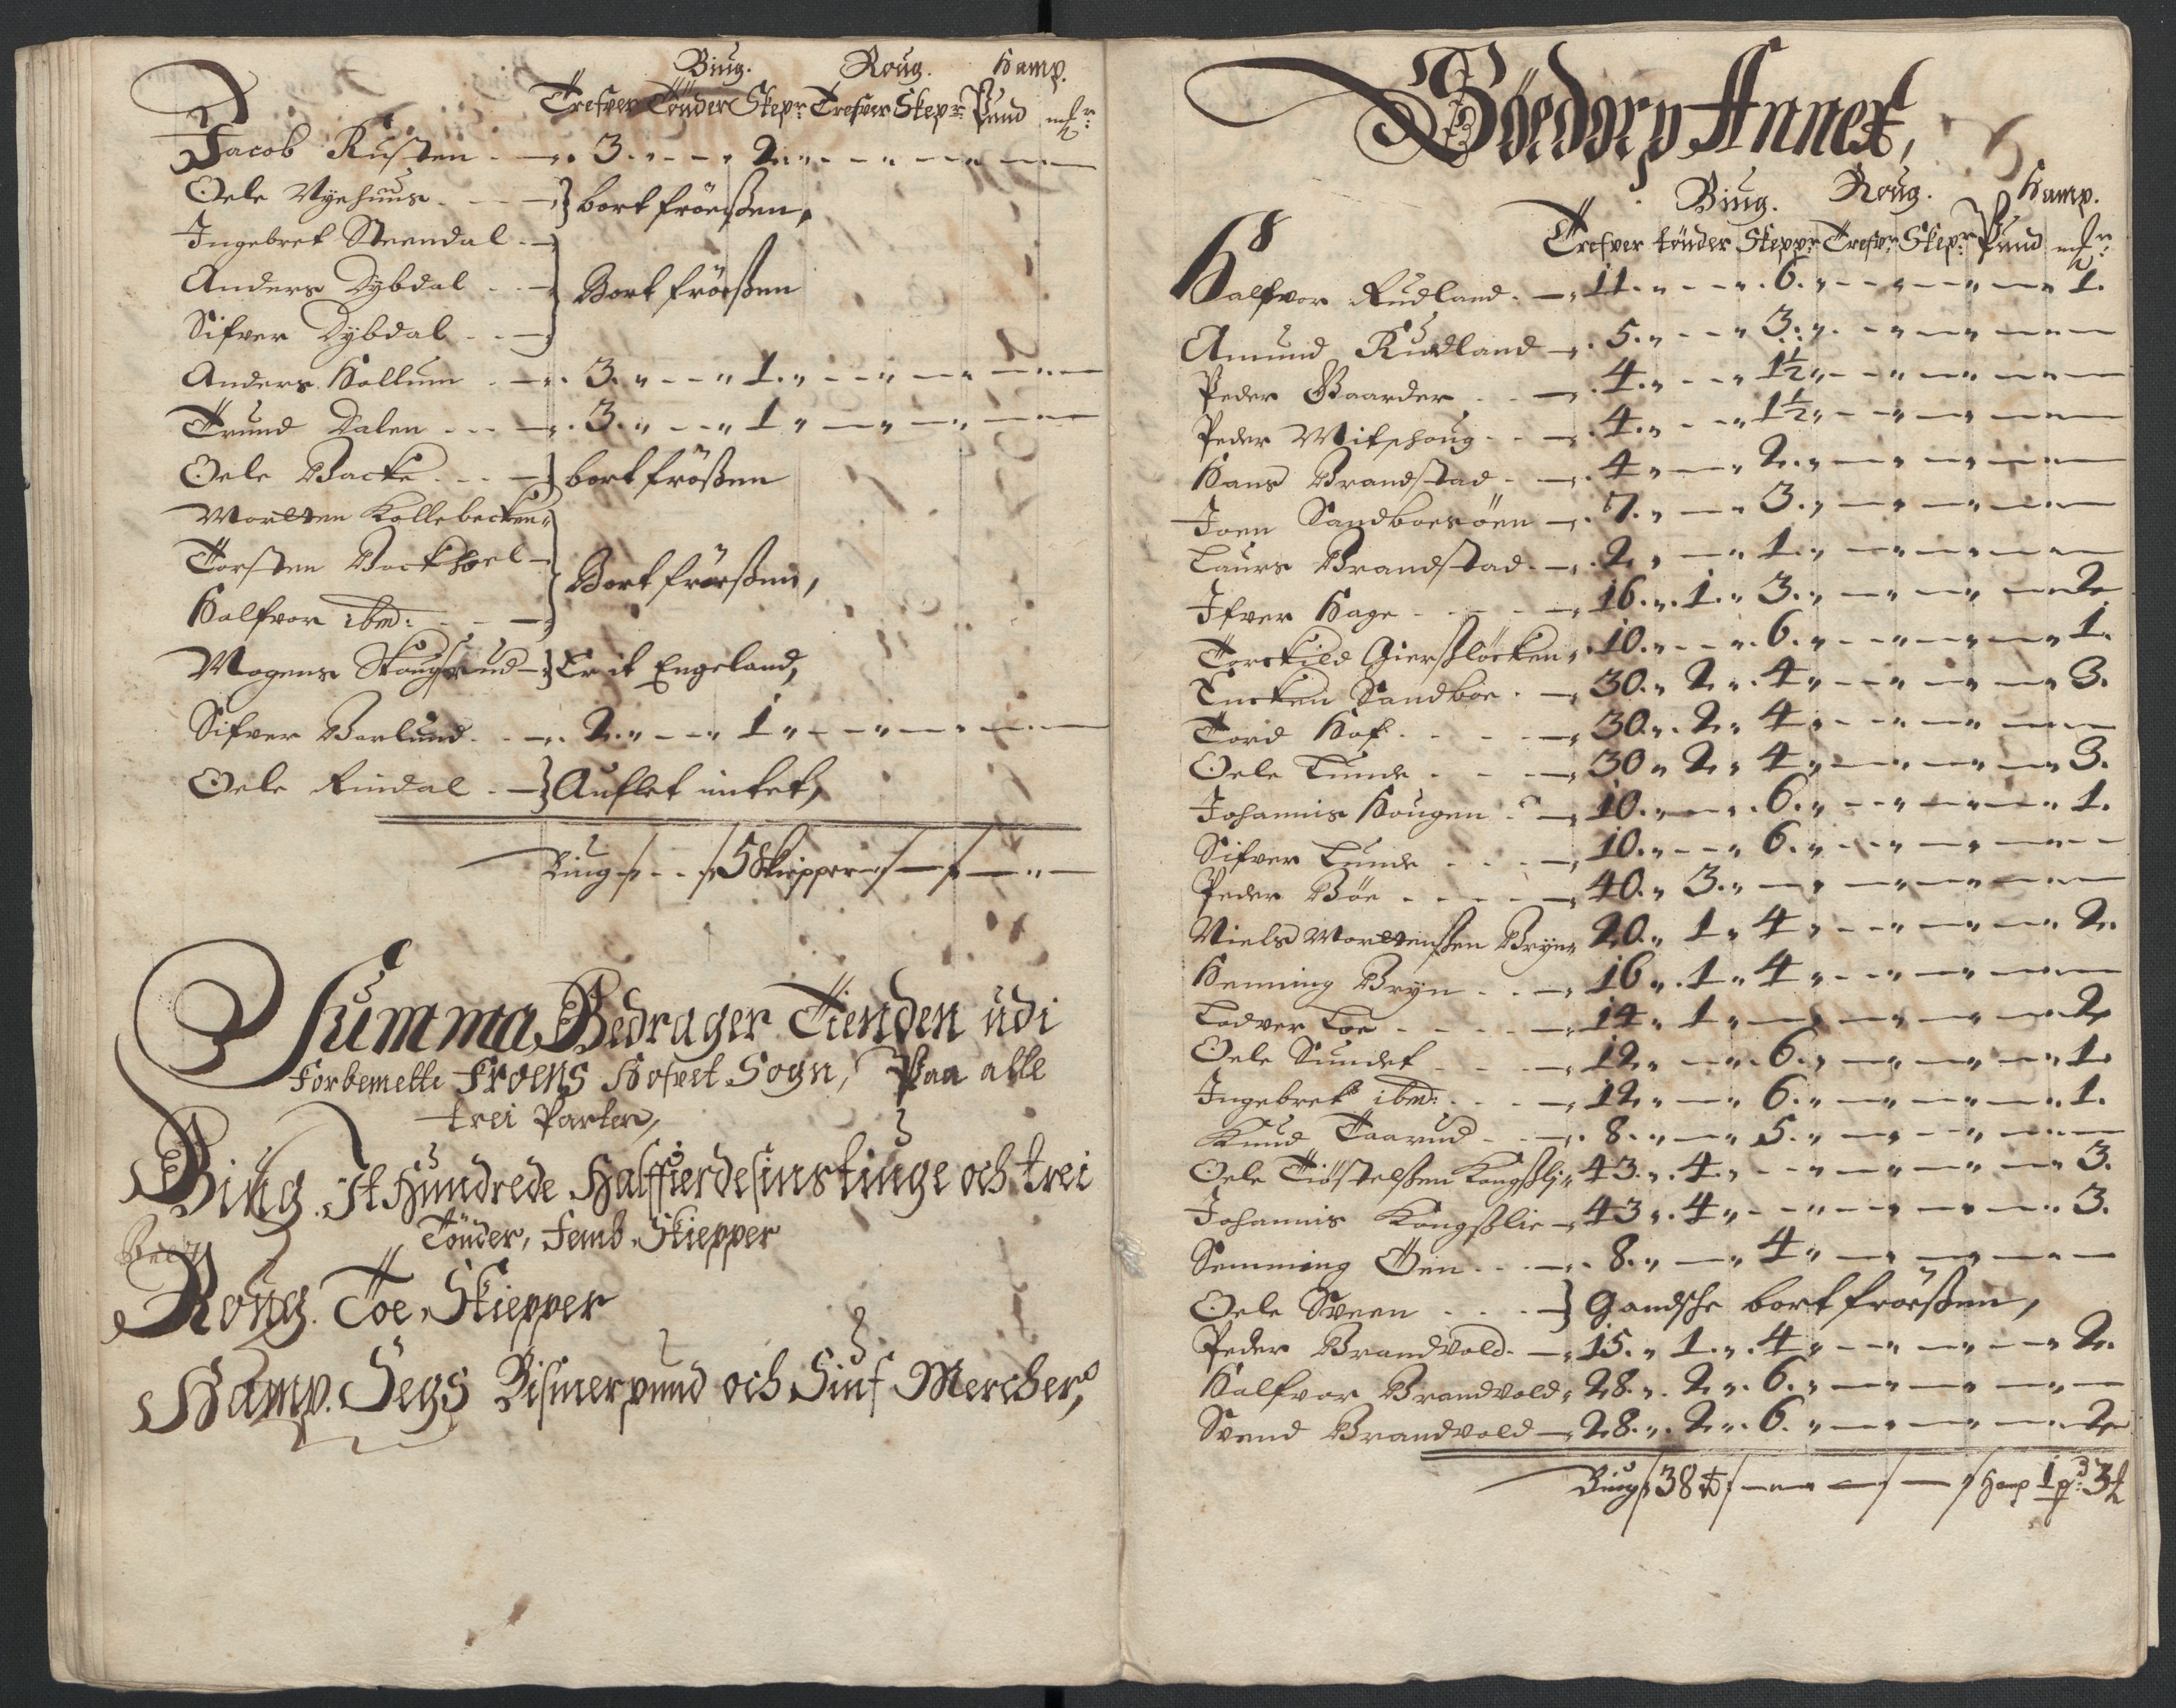 Biug. Roug. Hamp.
Trefver Tönder Skepr: Trefver Skepr: Pund mkr:
Jacob Rusten - 3 - 2
Oele Nyehuus - } bortfröeßen,
Ingebret Steendal -
Anders Dybdal - } Bortfröeßen
Sifver Dybdal -
Anders Hollum - 3 - 1
Trund Dalen - 3 - 1
Oele Backe - } bortfrößen
Morten Kollebecken
Torsten Backhoel - } Bortfröeßen,
Halfvor ibm:
Mogens Skougsrud - } Er it Engeland,
Sifver Barlund - 2 - 1
Oele Rindal - } Auflet intet,
Biug - 5 Skiepper
Summa Bedrager Tienden udi
Forbemelte Froens Hofvet Sogn, Paa alle
trei Parter,
Biug. It Hundrede Halffierdesinstiuge och trei
Tönder, Femb Skiepper
Roug. Toe Skiepper
Hamp. Segs Bismerpund och Siuf Mercher,
Böedorp Annex,
Biug. Roug. Hamp.
Trefver tönder Skeppr Trefvr Skepr Pund mkr:
Halfvor Rudland - 11 - 6 - 1.
Amund Rudland - 5 - 3
Peder Gaarder - 4 - 1½
Peder Mitshoug - 4 - 1½
Hans Brandstad - 4 - 2
Joen Sandboesöen - 7 - 3
Laurs Brandstad - 2 - 1
Ifver Hage - 16 - 1 - 3 - 2
Torckild Gierßlöcken - 10 - 6 - 1.
Encken Sandboe - 30 - 2 - 4 - 3.
Tord Hof - 30 - 2 - 4
Oele Lunde - 30 - 2 - 4 - 3.
Johannis Hougen - 10 - 6 - 1.
Sifver Lunde - 10 - 6
Peder Böe - 40 - 3
Niels Mortenßen Bryn - 20 - 1 - 4 - 2.
Henning Bryn - 16 - 1 - 4
Lodver Loe - 14 - 1 - 2
Oele Sundet - 12 - 6 - 1
Ingebret ibm: - 12 - 6 - 1.
Knud Taarud - 8 - 5
Oele Tiöstelßen Kongßli - 43 - 4 - 3.
Johannis Kongßlie - 43 - 4 - 3.
Semming Öen - 8 - 4
Oele Sveen - } Gandsche bortfröeßen,
Peder Brandvold - 15 - 1 - 4 - 2.
Halfvor Brandvold - 28 - 2 - 6
Svend Brandvold - 28 - 2 - 6 - 2
Biug 38 t: - Hamp 1 pd: 3 ℔